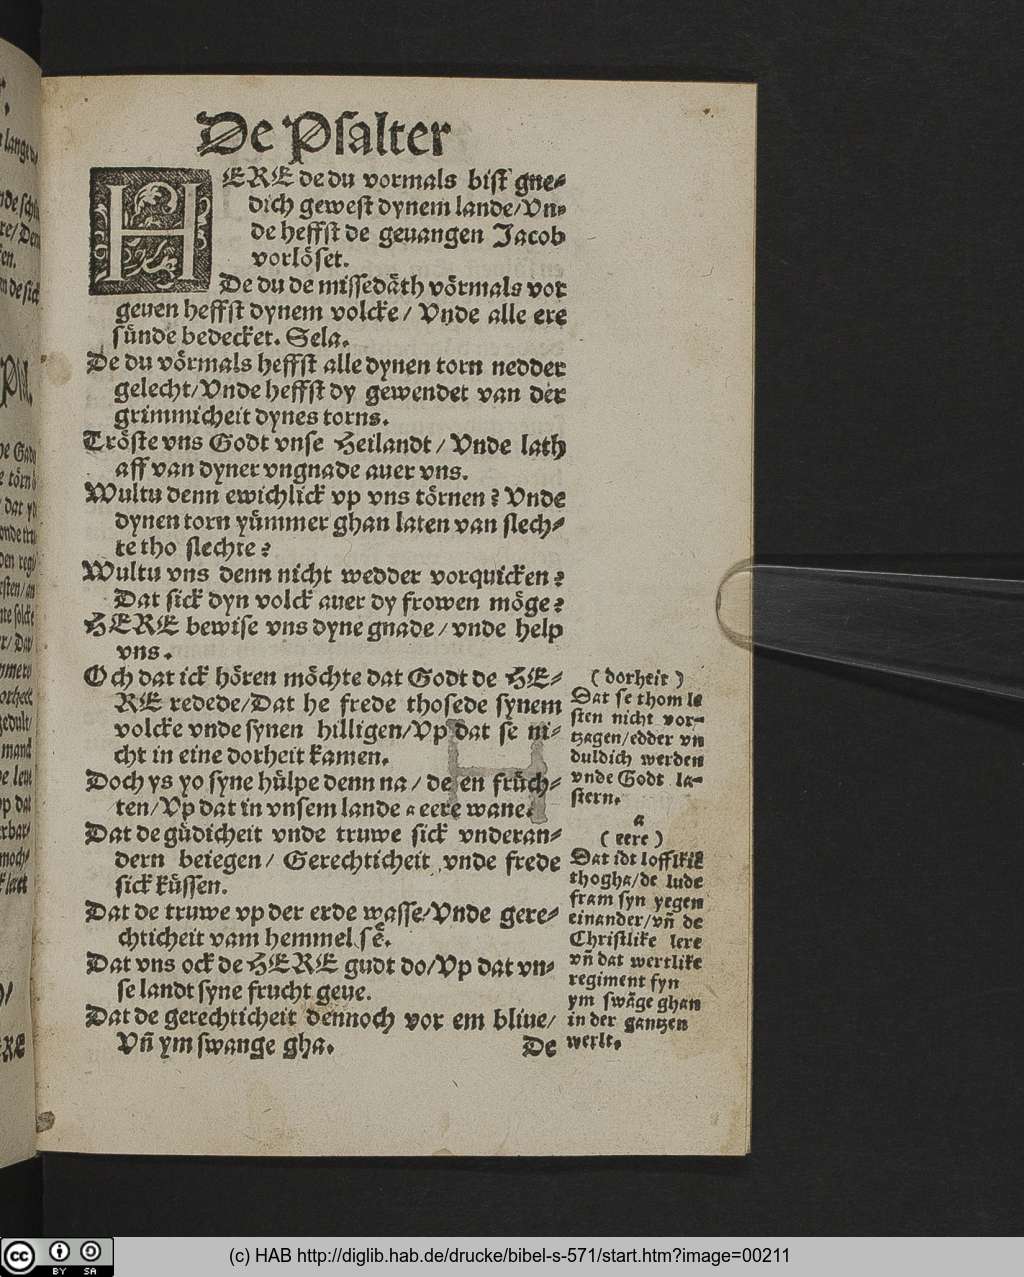 De Psalter
HERE de du vormals bist gne⸗
dich gewest dynem lande/Vn⸗
de heffst de geuangen Jacob
vorlöset.
De du de missedåth vörmals vor
geuen heffst dynem volcke/ Vnde alle ere
sünde bedecket. Sela.
De du vörmals heffst alle dynen torn nedder
gelecht/Vnde heffst dy gewendet van der
grimmicheit dynes torns.
Tröste vns Godt vnse Heilandt/ Vnde lath
aff van dyner vngnade auer vns.
Wultu denn ewichlick vp vns törnen? Vnde
dynen torn yümmer ghan laten van slech⸗
te tho slechte?
Wultu vns denn nicht wedder vorquicken?
Dat sick dyn volck auer dy frowen möge?
HERE bewise vns dyne gnade/ vnde help
vns.
Och dat ick hören möchte dat Godt de HE⸗
RE redede/Dat he frede thosede synem
volcke vnde synen hilligen/Vp dat se ni⸗
cht in eine dorheit kamen.
Doch ys yo syne hülpe denn na/ de en früch⸗
ten/Vp dat in vnsem lande a eere wane.
Dat de güdicheit vnde truwe sick vnderan⸗
dern beiegen/ Gerechticheit vnde frede
sick küssen.
Dat de truwe vp der erde wasse/Vnde gere⸗
chticheit vam hemmel sê.
Dat vns ock de HERE gudt do/Vp dat vn⸗
se landt syne frucht geue.
Dat de gerechticheit dennoch vor em bliue/
Vñ ym swange gha.
De
(dorheit)
Dat se thom le
sten nicht vor⸗
tzagen/edder vn
duldich werden
vnde Godt la⸗
stern.
a
(eere)
Dat idt lofflikik
thogha/de lude
fram syn yegen
einander/vñ de
Christlike lere
vñ dat wertlike
regiment syn
ym swåge ghan
in der gantzen
werlt.
(c) HAB http://diglib.hab.de/drucke/bibel-s-571/start.htm?image=00211
cc BY SA